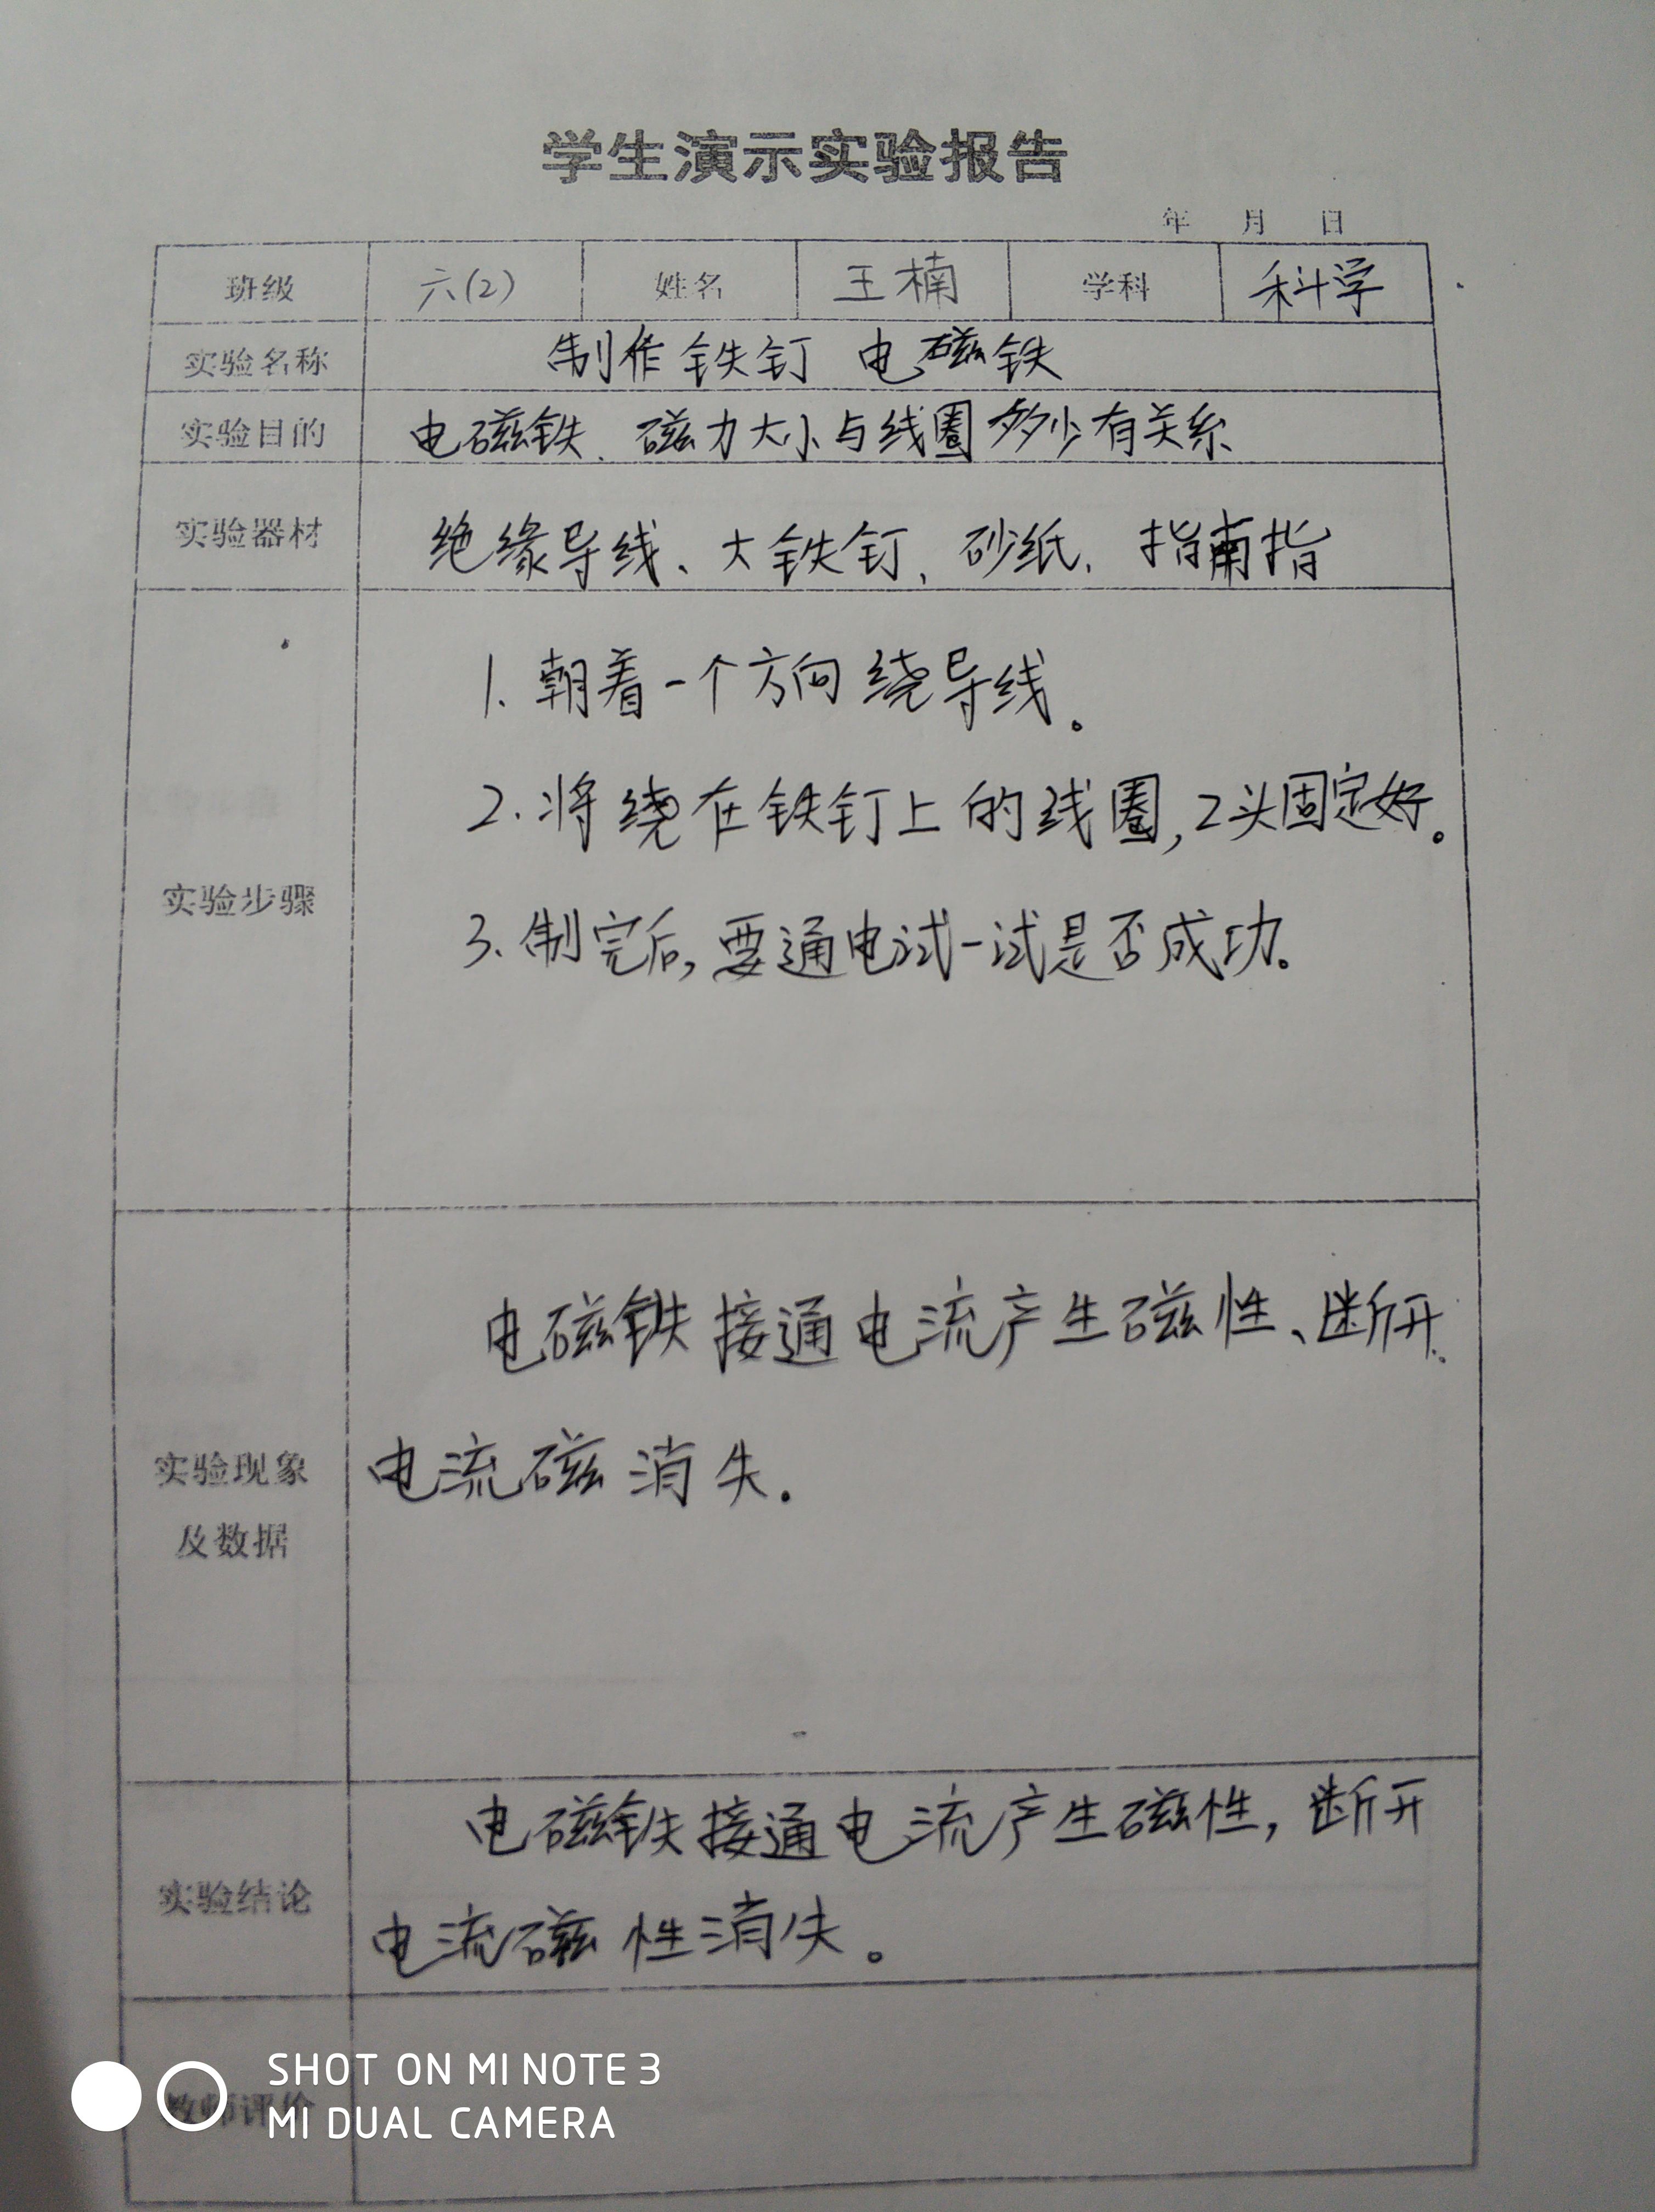 学生演示实验报告
年 月 日
班级 六(2) 姓名 王楠 学科 科学
实验名称 制作铁钉 电磁铁
实验目的 电磁铁、磁力大小与线圈多少有关系
实验器材 绝缘导线、大铁钉、砂纸、指南指
1.朝着一个方向绕导线。
2.将绕在铁钉上的线圈,2头固定好。
实验步骤
3.制完后,要通电试一试是否成功。
电磁铁接通电流产生磁性、断开
电流磁消失.
实验现象
及数据
电磁铁接通电流产生磁性,断开
实验结论
电流磁性消失。
教师评价
SHOT ON MI NOTE 3
MI DUAL CAMERA